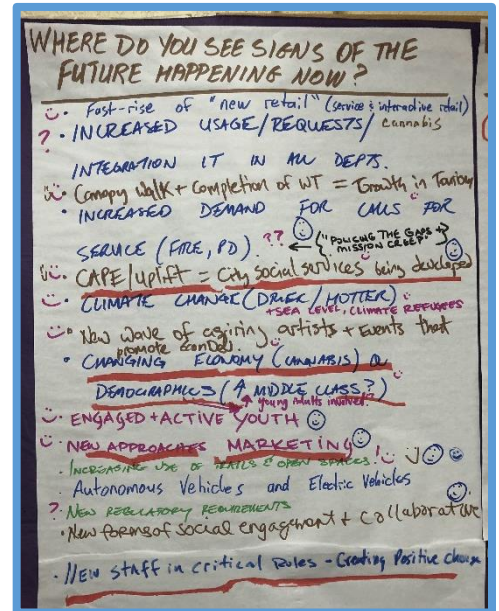 WHERE DO YOU SEE SIGNS OF THE
FUTURE HAPPENING NOW?
• Fast-rise of "new retail" (service & interactive retail)
? • INCREASED USAGE/REQUESTS/ cannabis
INTEGRATION IT IN ALL DEPTS.
Canopy Walk + Completion of WT = Growth in Tourism
• INCREASED DEMAND FOR CALLS FOR
SERVICE (FIRE, PD) ?? ← {"POLICING THE GAPS" MISSION CREEP"}
• CAPE/Uplift = City social services being developed
• CLIMATE CHANGE (DRIER/HOTTER)
+ SEA LEVEL, CLIMATE REFUGEES
• New wave of aspiring artists + Events that
promote EconDev.
• CHANGING ECONOMY (CANNABIS) &
DEMOGRAPHICS (↑ MIDDLE CLASS?)
↑ young adults involved?
• ENGAGED + ACTIVE YOUTH
• NEW APPROACHES MARKETING
• INCREASING USE OF TRAILS & OPEN SPACES !
• Autonomous Vehicles and Electric Vehicles
? • NEW REGULATORY REQUIREMENTS
• New forms of social engagement + collaborative
• New staff in critical Roles - Creating Positive change